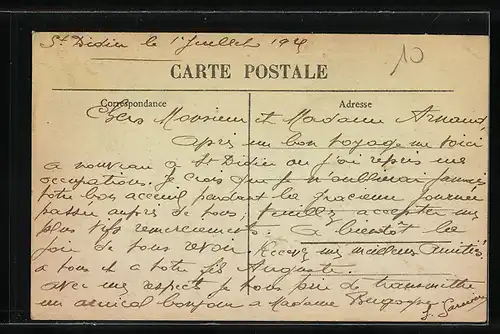 St Didier le 1 Juillet 19
10
CARTE POSTALE
Correspondance
Adresse
Chers Monsieur et Madame Arnaud,
Après un bon voyage me voici
a nouveau a St Didier ou j'ai repris mes
occupations. Je crois que je n'oublierai jamais
votre bon acceuil pendant la gracieuse journée
passée auprès de vous; Veuillez accepter mes
plus vifs remerciements. A bientôt la
joie de vous revoir. Recevez mes meilleures amitiés
a vous et a votre fils Auguste.
avec mes respects je vous prie de transmettre
un amical bonjour a Madame